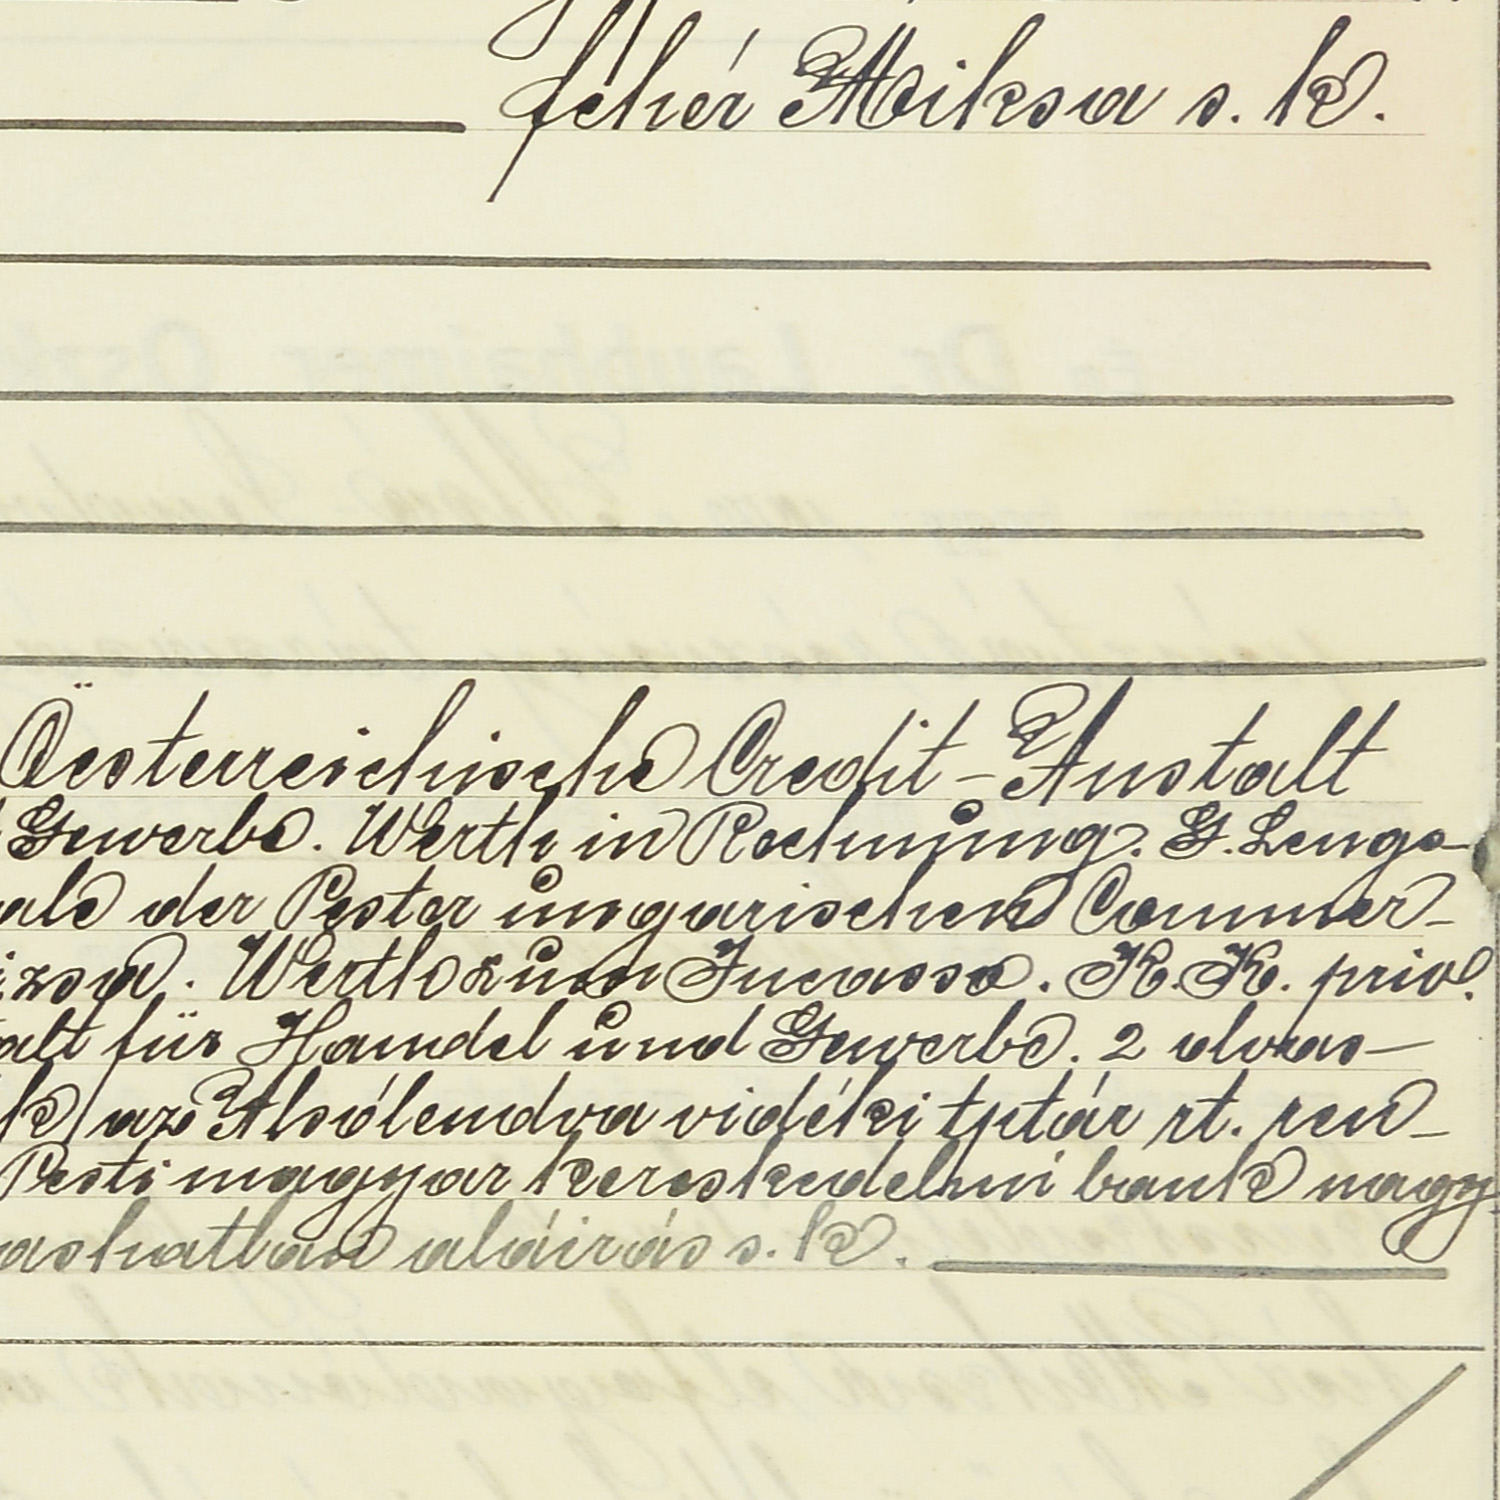 fehér Miksa s. k.
Österreichische Credit-Anstalt
Gewerbe. Werth in Rechnung. G. Lenge-
ale der Pester ungarischen Commer-
izsa. Werth zum Incasso. K. K. priv.
alt für Handel und Gewerbe. 2 olvas-
k/ az Alsólendva vidéki tptár rt. ren-
Pesti magyar kereskedelmi bank nagy-
ashatlan aláirás s. k.